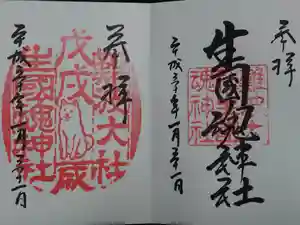 奉拝
生國魂神社
平成三十年一月三十一日
奉拝
難波大社
戊戌歳
生國魂神社
平成三十年一月三十一日